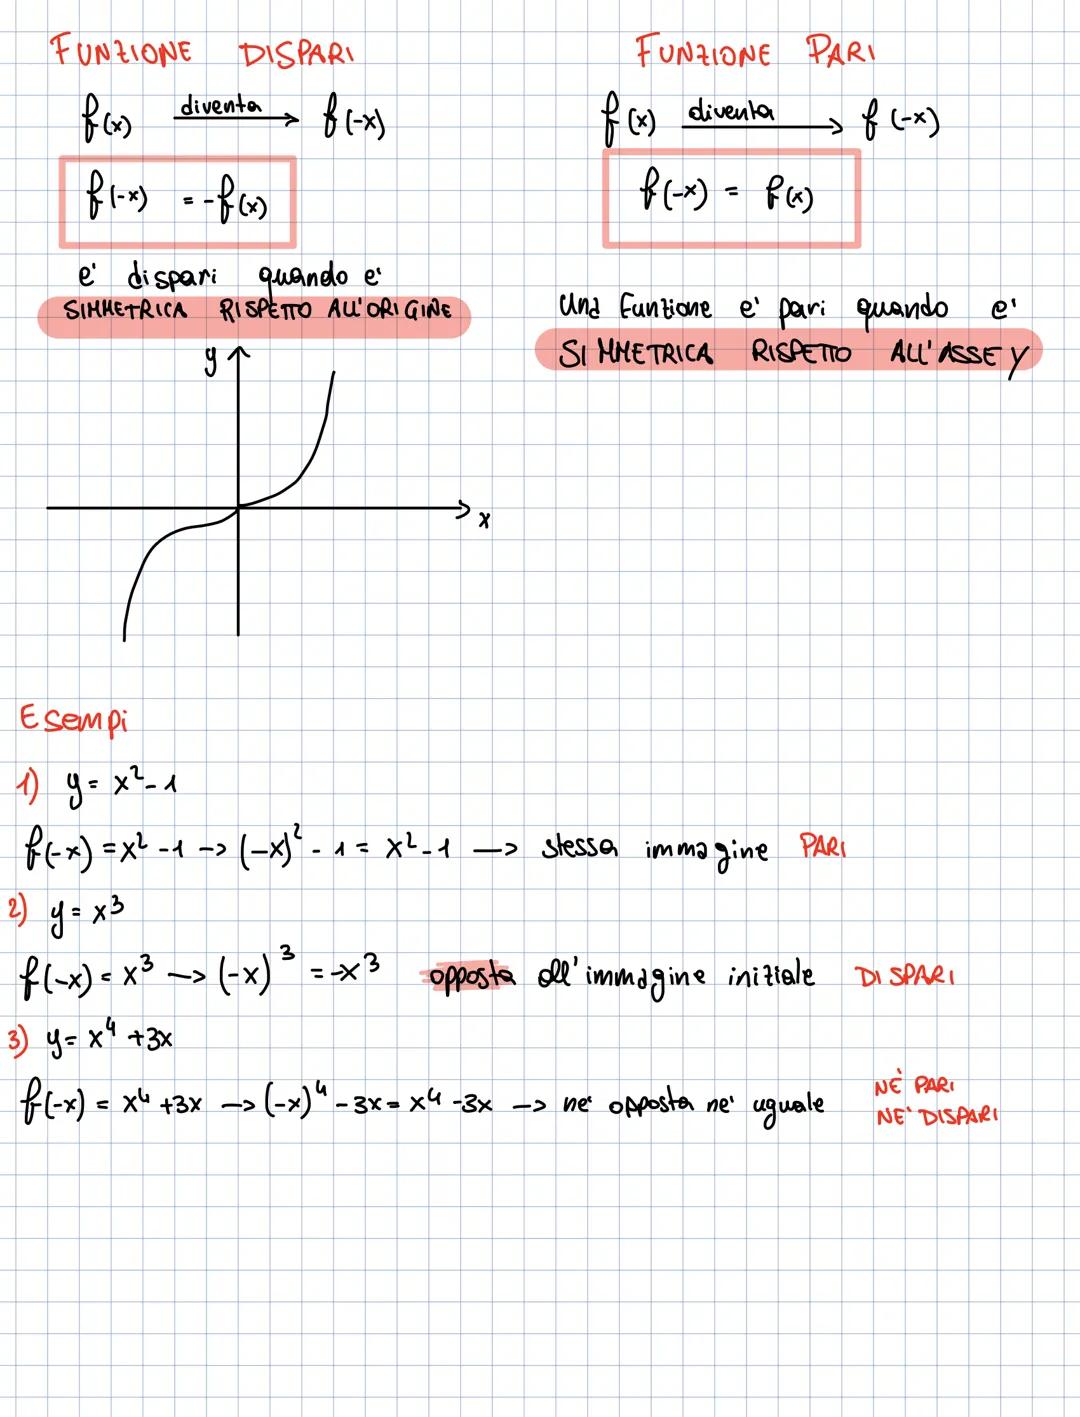 FUNZIONE DISPARI
f(x) diventa f(-x)
f(-x) = -f(x)
e' dispari quando e'
SIMMETRICA RISPETTO ALL'ORIGINE
y
x
FUNZIONE PARI
f(x) diventa f(-x)
f(-x) = f(x)
Una Funzione e' pari quando e'
SIMMETRICA RISPETTO ALL'ASSE Y
Esempi
1) y = x² - 1
f(-x) = x² - 1 -> (-x)² - 1 = x² - 1 -> stessa immagine PARI
2) y = x³
f(-x) = x³ -> (-x)³ = -x³ opposta all'immagine iniziale DISPARI
3) y = x⁴ + 3x
f(-x) = x⁴ + 3x -> (-x)⁴ - 3x = x⁴ - 3x -> ne' opposta ne' uguale NE' PARI
NE' DISPARI